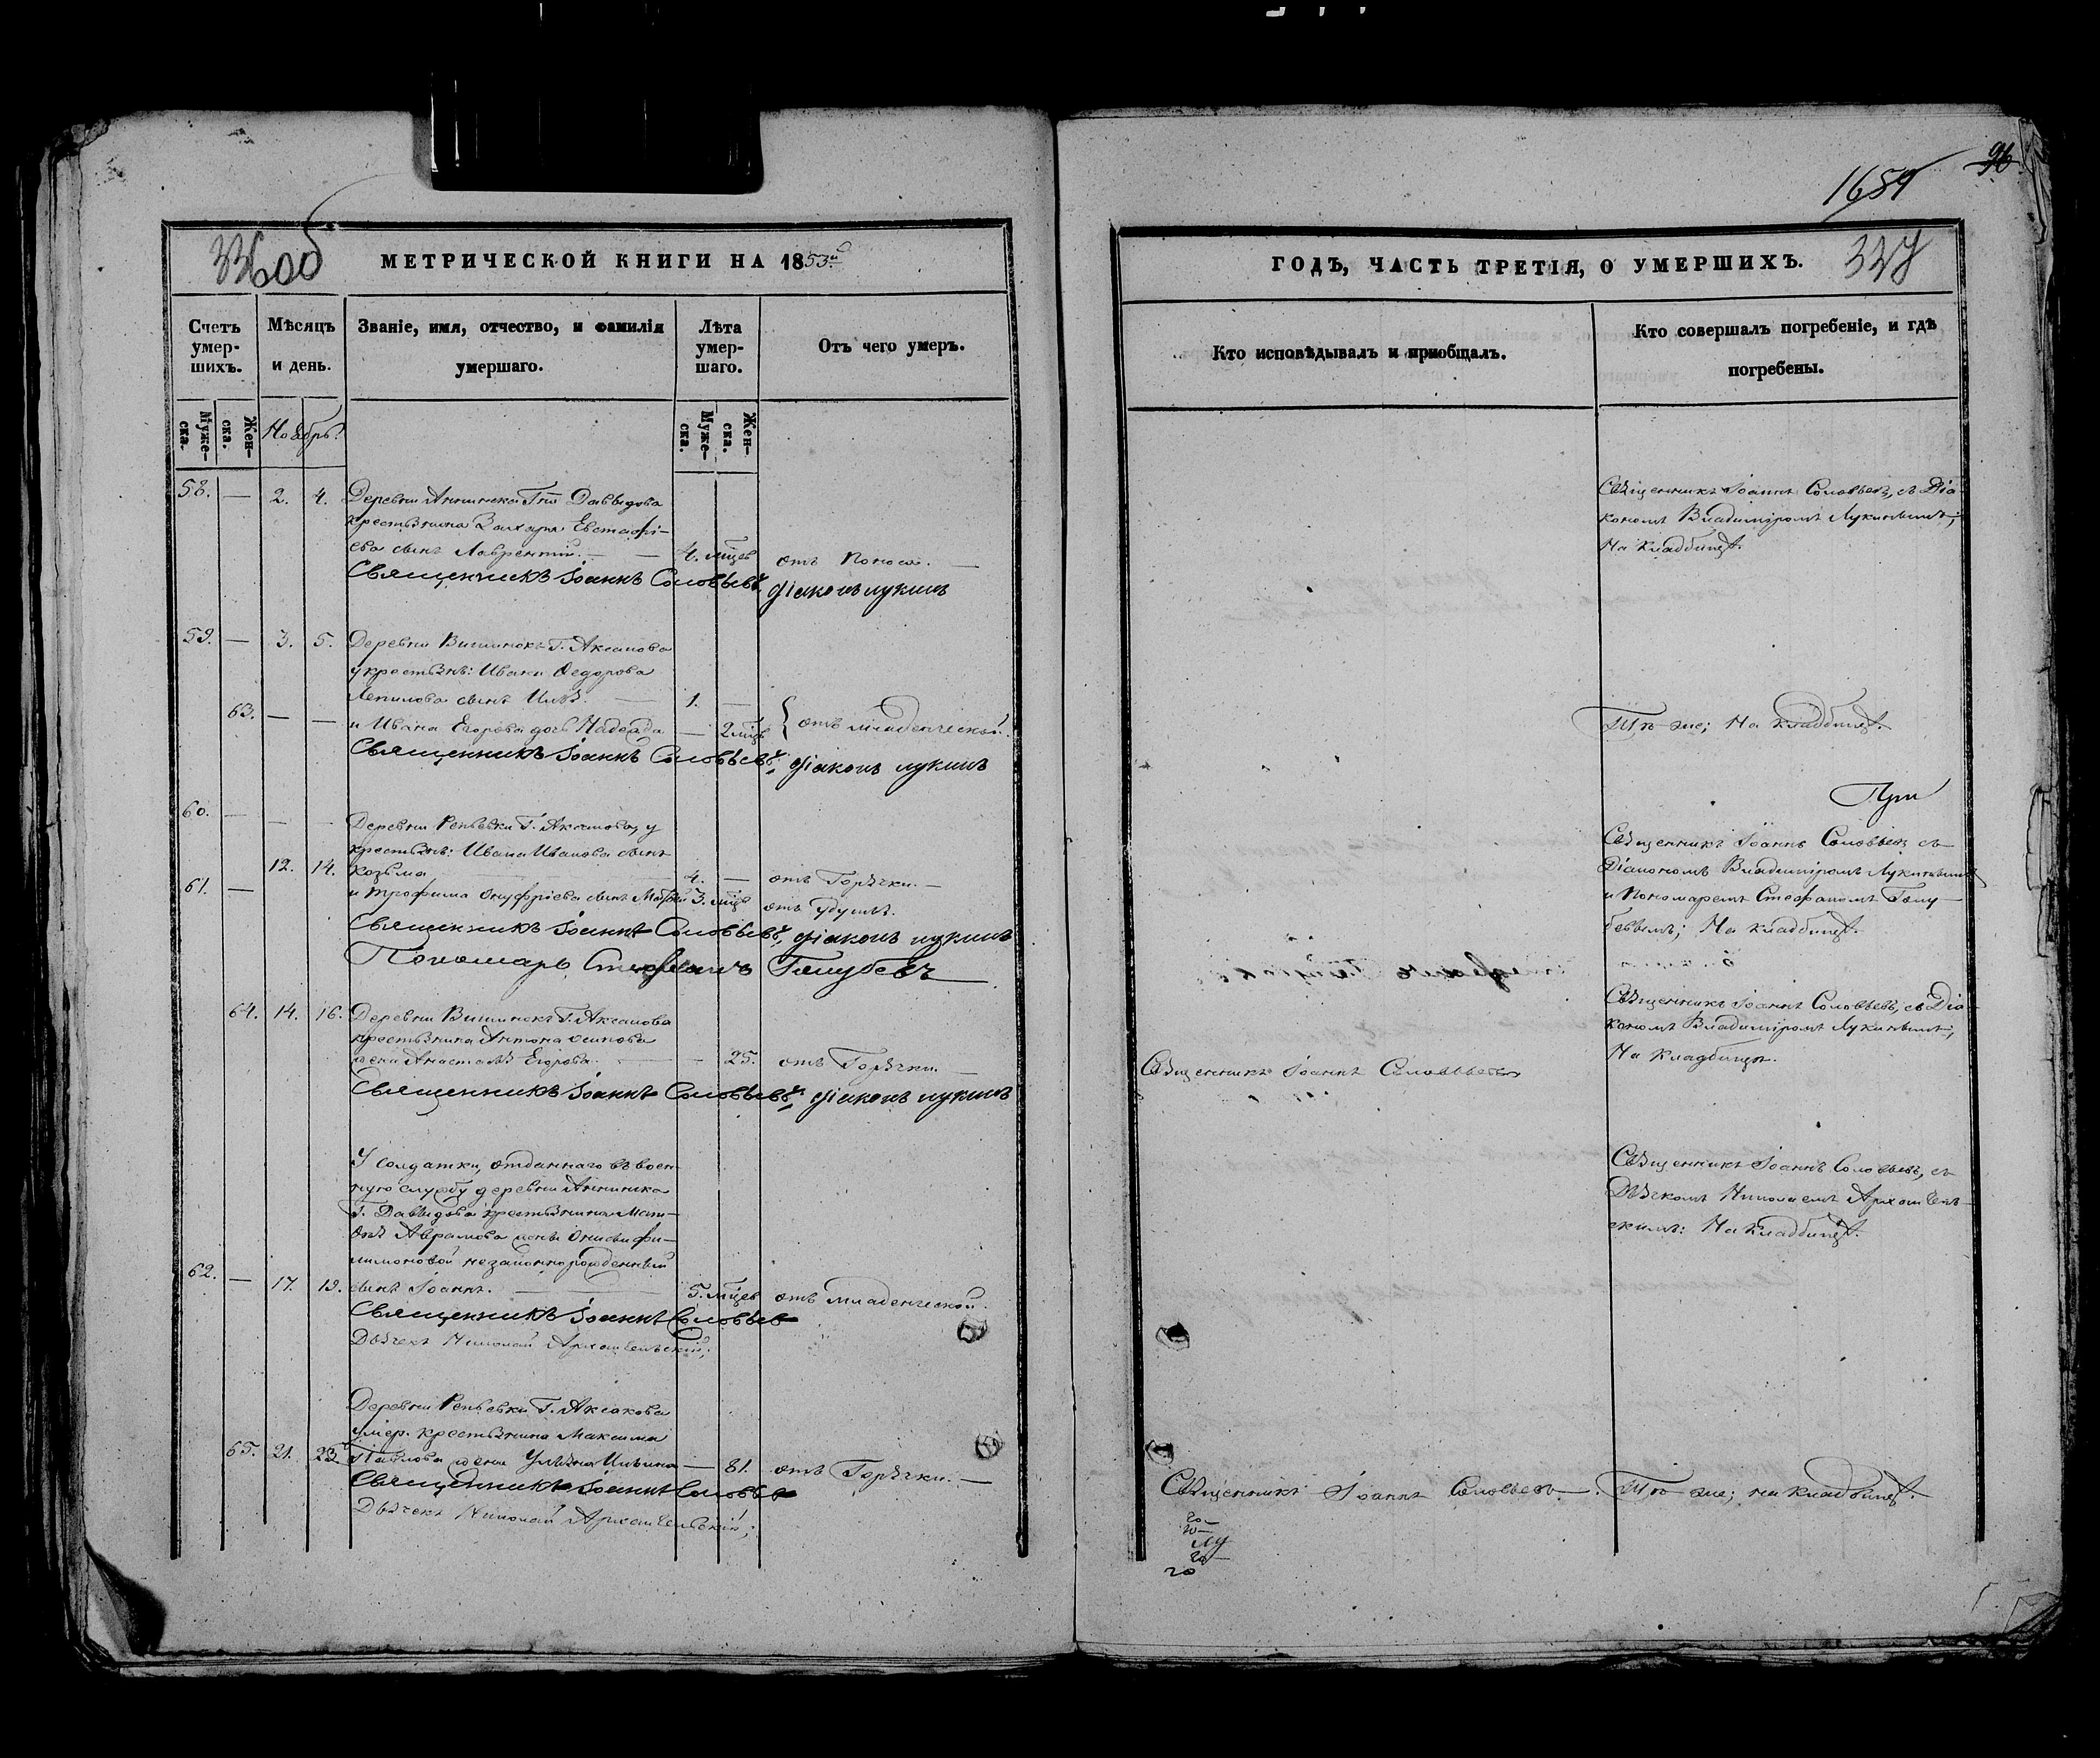 1654
96
336 об
МЕТРИЧЕСКОЙ КНИГИ НА 1853й
Счетъ умер-шихъ.
Мѣсяцъ и день.
Званіе, имя, отчество, и фамилія умершаго.
Лѣта умер-шаго.
Отъ чего умеръ.
Муже-ска.
Жен-ска.
Ноябрь.
Муже-ска.
Жен-ска.
58. — 2. 4. Деревни Аннинки Гпп Давыдова
крестьянина Захара Евстафі-
ева сынъ Лаврентій. — — 4. мцев отъ поноса. —
Священникъ Іоаннъ Соловьевъ. діаконъ лукинъ
59. — 3. 5. Деревни Вишнокъ Г. Аксакова
у крестьянъ: Ивана Ѳедорова
Лепилова сынъ Илья. — 1. —
63. — — и Ивана Егорова дочь Надежда — 2 мцв { отъ младенческой.
Священникъ Іоаннъ Соловьевъ. діаконъ лукинъ
60. — — — Деревни Репьевки Г. Аксакова, у
крестьянъ: Ивана Иванова сынъ
12. 14. Козьма — 4. — отъ Горячки. —
61. — и Трофима Онуфріева сынъ Матвей 3. мцв отъ удушья.
Священникъ Іоаннъ Соловьевъ, діаконъ лукинъ
Пономарь Стефанъ Голубевъ
64. 14. 16. Деревни Вишнокъ Г. Аксакова
крестьянина Антона Осипова
жена Анастасья Егорова. — — 25. отъ Горячки. —
Священникъ Іоаннъ Соловьевъ. діаконъ лукинъ
У солдатки, отданнаго въ воен-
ную службу деревни Аннинка
Г. Давыдова крестьянина Мат-
вея Аврамова жены Онисьи Фи-
лимоновой незаконнорожденный
62. — 17. 19. сынъ Іоаннъ. — 5. мцев отъ младенческой.
Священникъ Іоаннъ Соловьев
Дьячекъ Николай Архангельскій;
Деревни Репьевки Г. Аксакова
умер. крестьянина Максима
65. 21. 23. Павлова жена Ульяна Ильина — 81. отъ Горячки. —
Священникъ Іоаннъ Соловьев
Дьячекъ Николай Архангельскій;
ГОДЪ, ЧАСТЬ ТРЕТІЯ, О УМЕРШИХЪ.
337
Кто исповѣдывалъ и пріобщалъ.
Кто совершалъ погребеніе, и гдѣ погребены.
Священникъ Іоаннъ Соловьевъ, съ Діа-
кономъ Владиміромъ Лукинымъ;
На кладбищѣ.
Тѣ же; На кладбищѣ.
Священникъ Іоаннъ Соловьевъ съ
Діакономъ Владиміромъ Лукинымъ
и Пономаремъ Стефаномъ Голу-
бевымъ; На кладбищѣ.
Священникъ Іоаннъ Соловьевъ, съ Діа-
кономъ Владиміромъ Лукинымъ,
На кладбищѣ.
Священникъ Іоаннъ Соловьевъ
Священникъ Іоаннъ Соловьевъ, съ
Дьячкомъ Николаемъ Архангель-
скимъ: На кладбищѣ.
Священникъ Іоаннъ Соловьевъ. Тѣ же; на кладбищѣ.